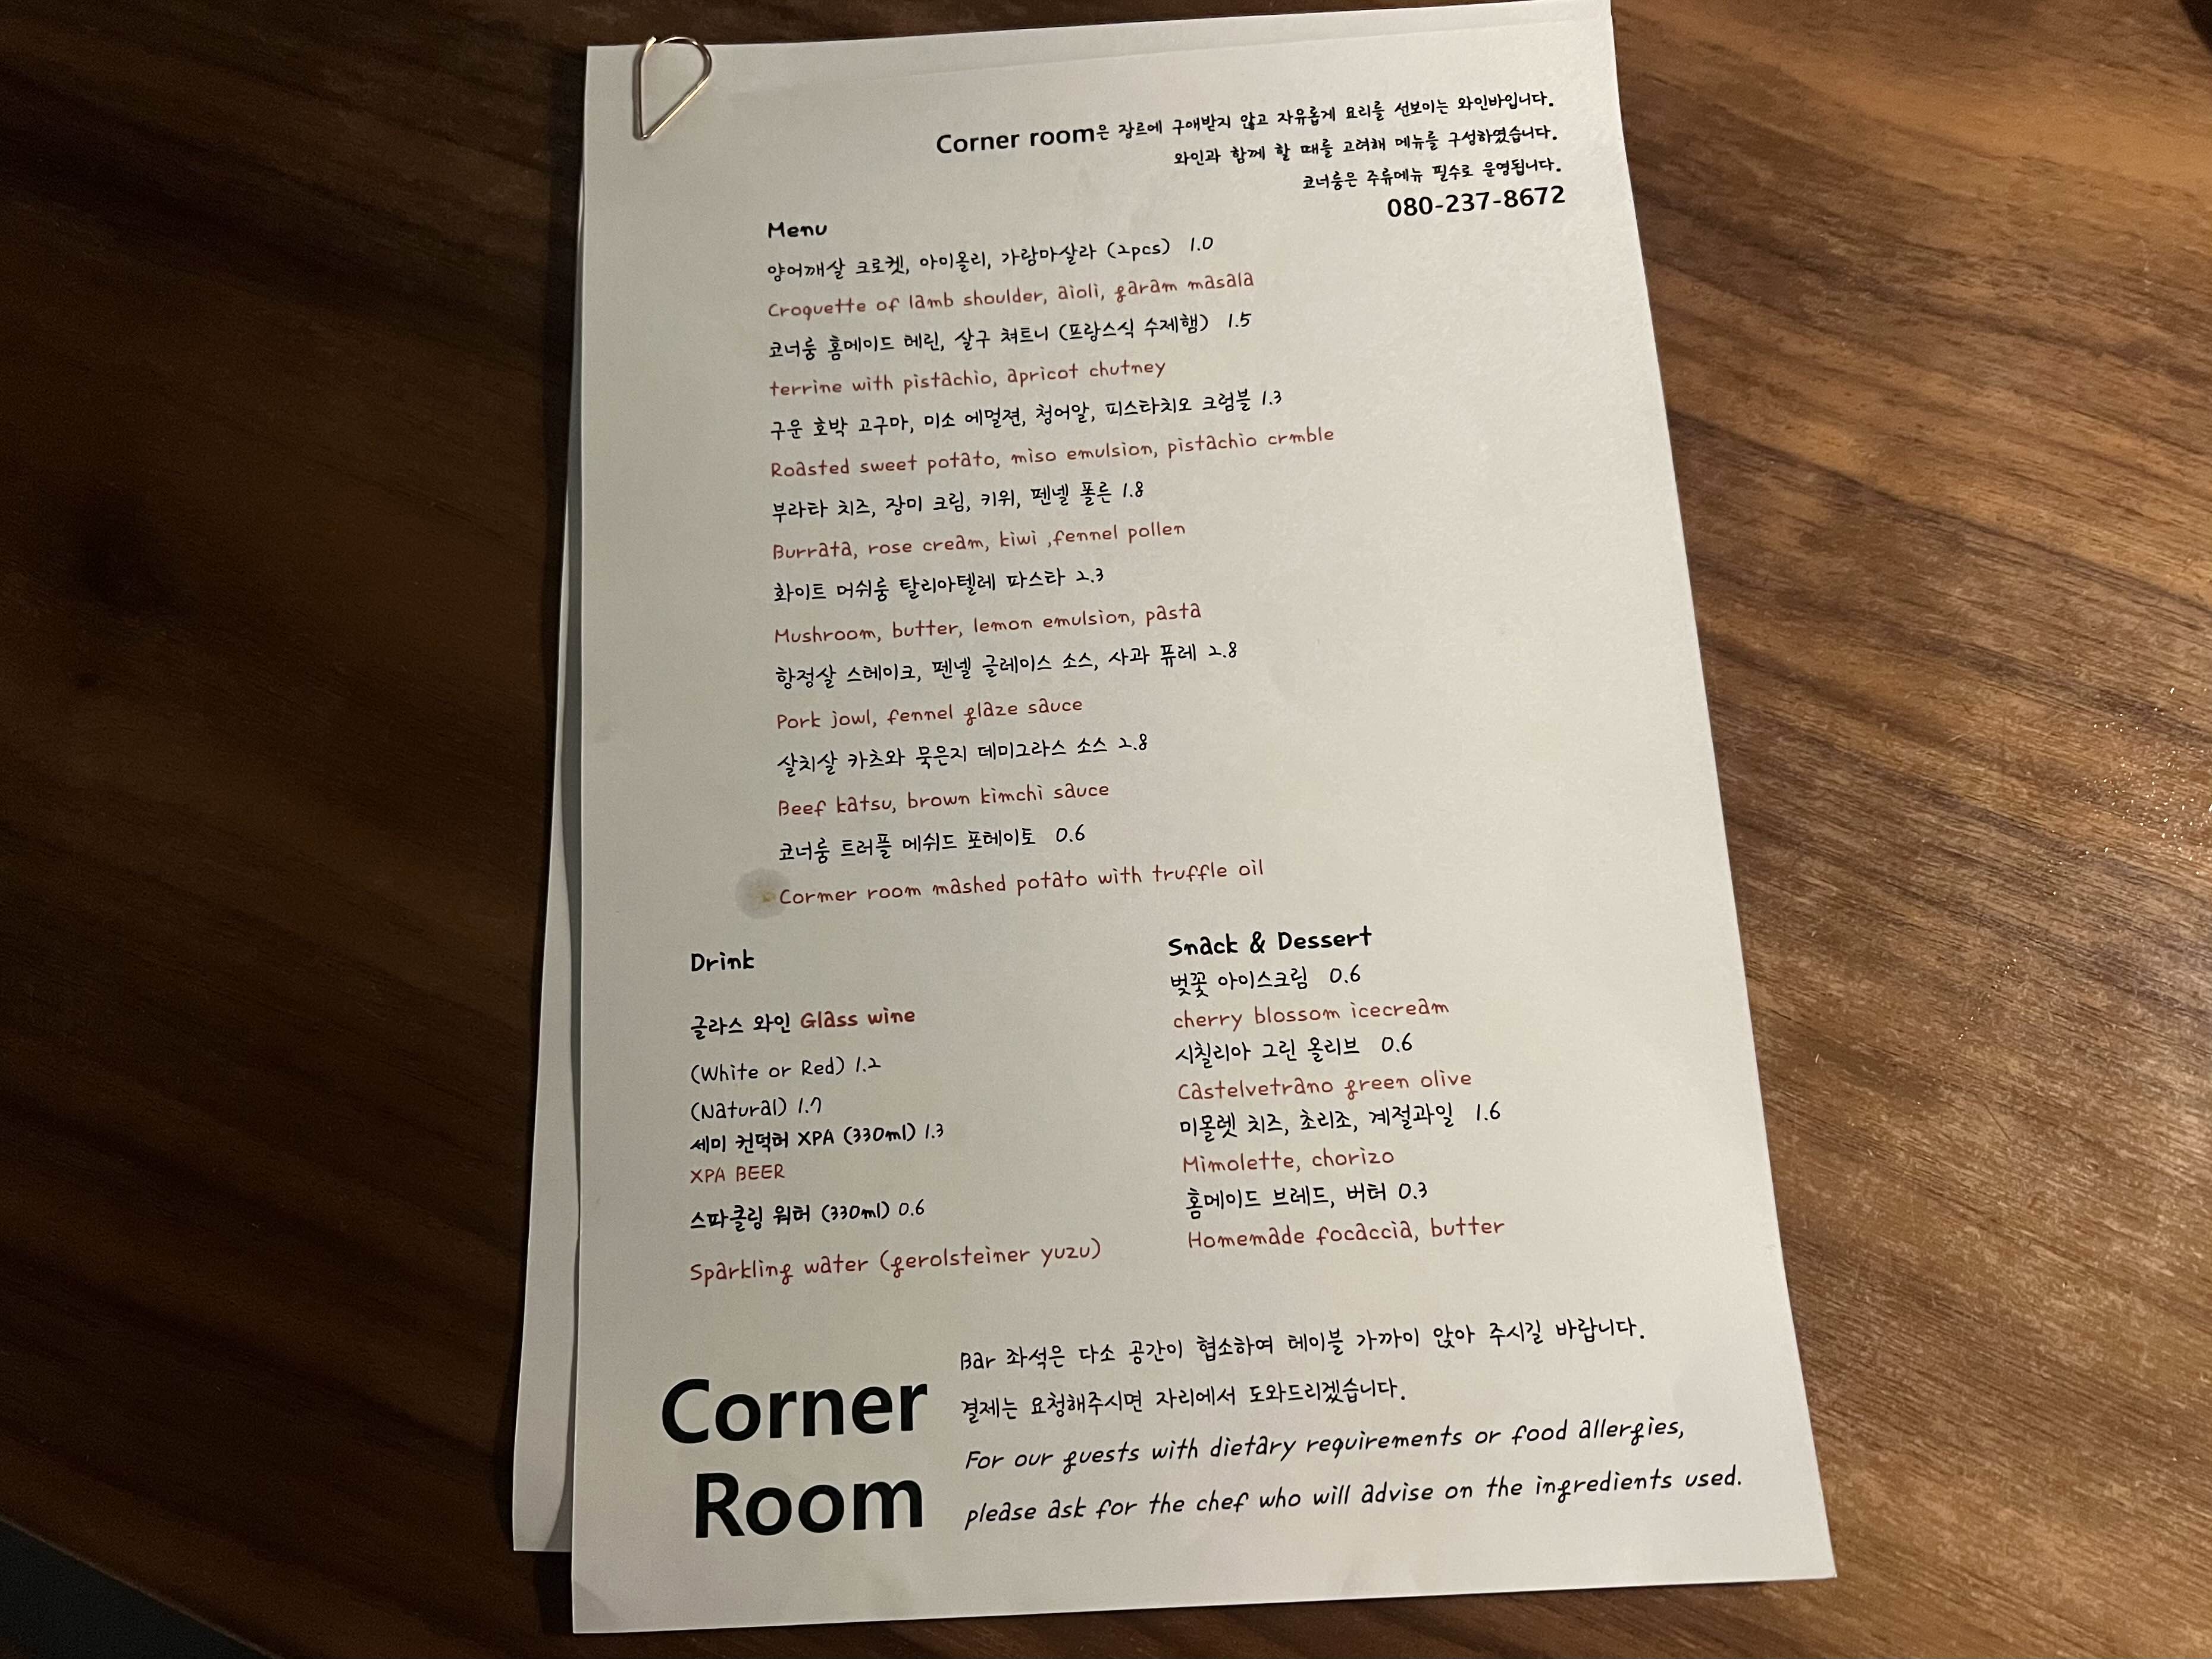 Corner room은 장르에 구애받지 않고 자유롭게 요리를 선보이는 와인바입니다.
와인과 함께 할 때를 고려해 메뉴를 구성하였습니다.
코너룸은 주류메뉴 필수로 운영됩니다.
080-237-8672
Menu
양어깨살 크로켓, 아이올리, 가람마살라 (2pcs) 1.0
Croquette of lamb shoulder, aioli, garam masala
코너룸 홈메이드 테린, 살구 쳐트니 (프랑스식 수제햄) 1.5
terrine with pistachio, apricot chutney
구운 호박 고구마, 미소 에멀젼, 청어알, 피스타치오 크럼블 1.3
Roasted sweet potato, miso emulsion, pistachio crmble
부라타 치즈, 장미 크림, 키위, 펜넬 폴른 1.8
Burrata, rose cream, kiwi ,fennel pollen
화이트 머쉬룸 탈리아텔레 파스타 2.3
Mushroom, butter, lemon emulsion, pasta
항정살 스테이크, 펜넬 글레이스 소스, 사과 퓨레 2.8
Pork jowl, fennel glaze sauce
살치살 카츠와 묵은지 데미그라스 소스 2.8
Beef katsu, brown kimchi sauce
코너룸 트러플 메쉬드 포테이토 0.6
Cormer room mashed potato with truffle oil
Drink
글라스 와인 Glass wine
(White or Red) 1.2
(Natural) 1.7
세미 컨덕터 XPA (330ml) 1.3
XPA BEER
스파클링 워터 (330ml) 0.6
Sparkling water (gerolsteiner yuzu)
Snack & Dessert
벚꽃 아이스크림 0.6
cherry blossom icecream
시칠리아 그린 올리브 0.6
Castelvetrano green olive
미몰렛 치즈, 초리조, 계절과일 1.6
Mimolette, chorizo
홈메이드 브레드, 버터 0.3
Homemade focaccia, butter
Corner
Room
Bar 좌석은 다소 공간이 협소하여 테이블 가까이 앉아 주시길 바랍니다.
결제는 요청해주시면 자리에서 도와드리겠습니다.
For our guests with dietary requirements or food allergies,
please ask for the chef who will advise on the ingredients used.